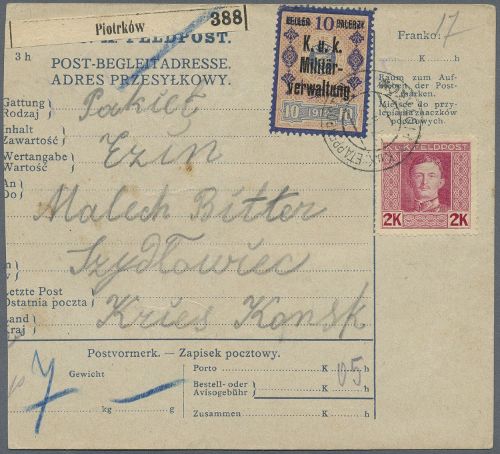 Piotrków 388
FELDPOST.
3 h
POST-BEGLEITADRESSE.
ADRES PRZESYŁKOWY.
HELLER 10 HALERZY
K. u. k.
Militär-
verwaltung.
10
Franko: 17
K h
Raum zum Auf-
der Post-
marken.
Miejsce do przy-
znaczków
pocztowych.
K.u.K. FELDPOST
2K 2K
Gattung
Rodzaj
Pakiet
Inhalt
Zawartość
Wertangabe
Wartość
An
Do
Malech Bitter
Szydłowiec
Letzte Post
Ostatnia poczta
Kries Końsk
Land
Kraj
Postvormerk. — Zapisek pocztowy.
7
Gewicht
kg g
Porto K 05 h
Bestell- oder
Avisogebühr K h
Zusammen K h